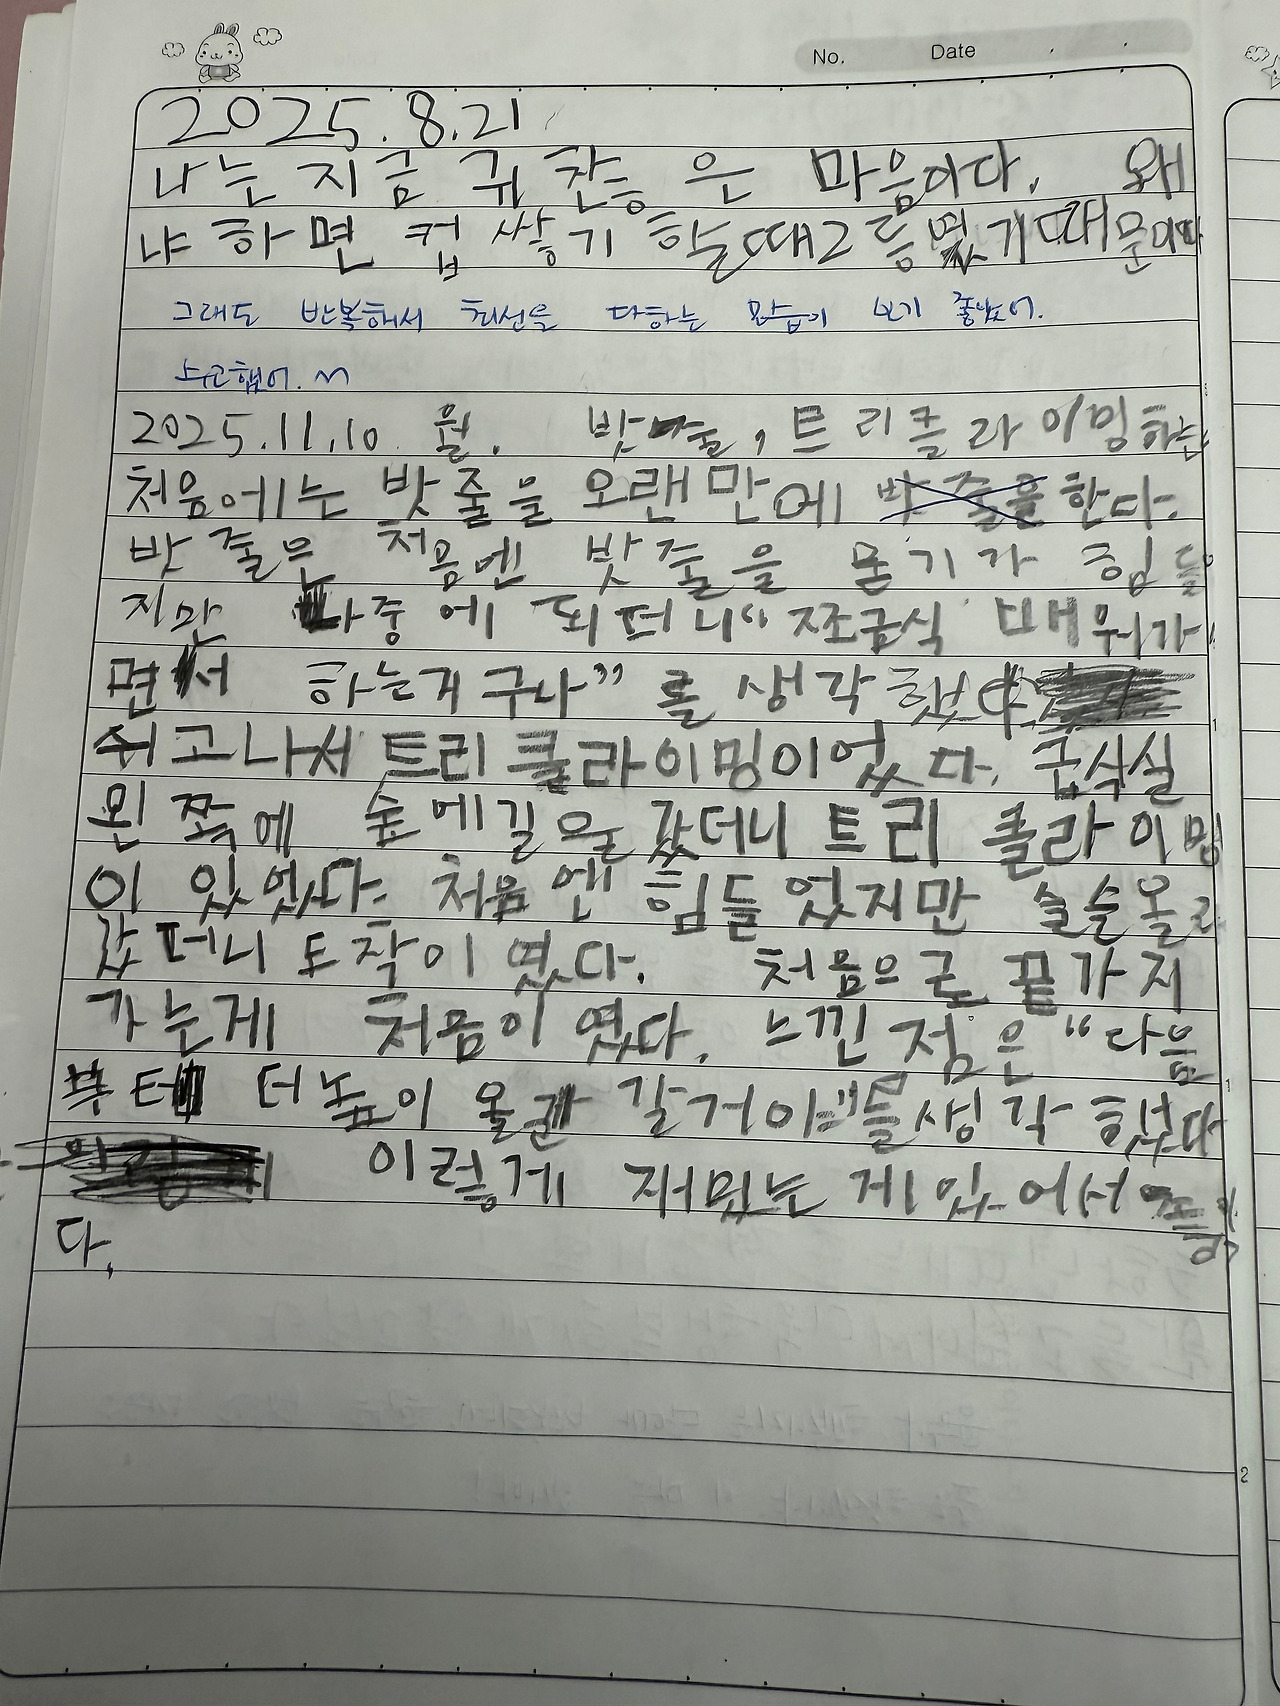 No. Date
2025.8.21
나는 지금 귀찬등 은 마음아다. 왜
냐하면 컵 쌓기 할때2등였기때문이다
그래도 반복해서 최선을 다하는 모습이 보기 좋았어.
수고했어.
2025.11.10 월. 밧줄, 트리클라이밍하는
처음에는 밧줄을 오랜만에 한다.
밧줄은 처음엔 밧줄을 묻기가 힘들
지만 나중에 되더니" 쪼금식 배워가
면서 하는거구나" 를 생각했다
쉬고나서 트리클라이밍이었다. 급식실
왼쪽에 숲에길을 갔더니 트리 클라이밍
이 있었다. 처음엔 힘들었지만 슬슬올라
갔더니 도착이 였다. 처음으로 끝가지
가는게 처음이 였다. 느낀 점은 "다음
부터 더 높이 올라 갈거야"를생각 했다
이렇게 재밌는 게 있어서
다.